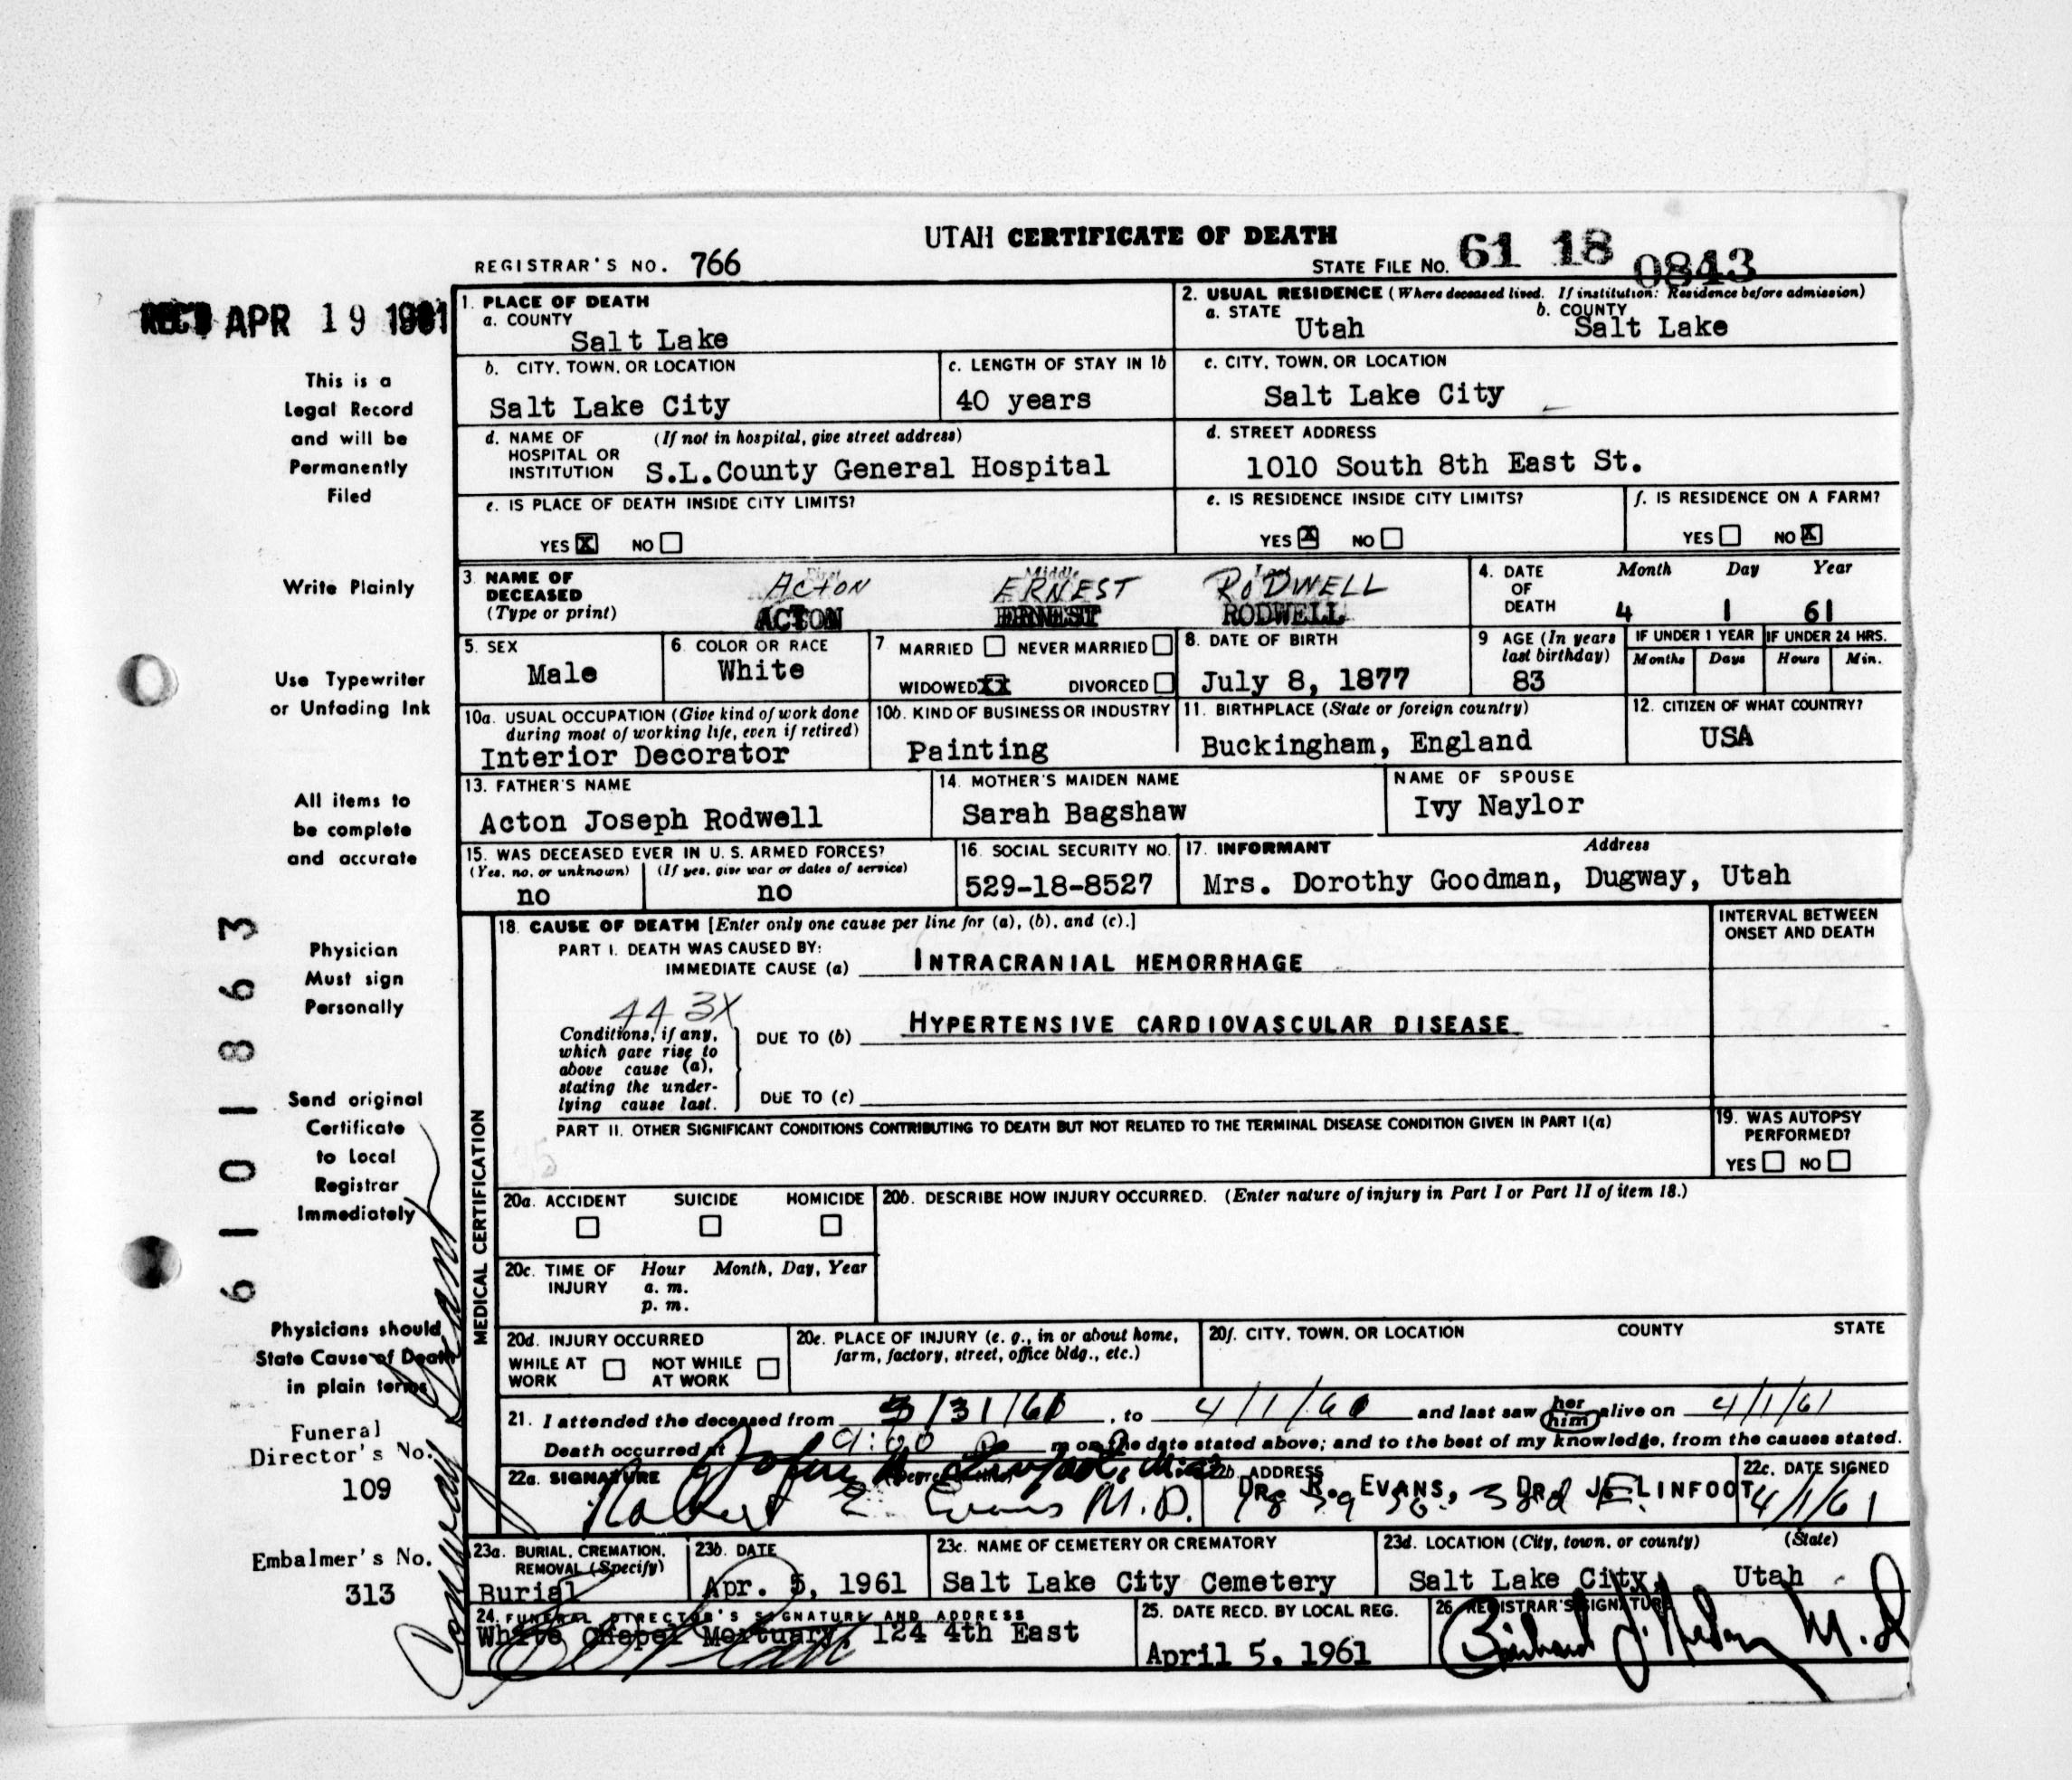 UTAH CERTIFICATE OF DEATH
REGISTRAR'S NO. 766
STATE FILE NO. 61 18 0843
REC'D APR 19 1961
1. PLACE OF DEATH
a. COUNTY
Salt Lake
2. USUAL RESIDENCE (Where deceased lived. If institution: Residence before admission)
a. STATE Utah b. COUNTY Salt Lake
b. CITY, TOWN, OR LOCATION
Salt Lake City
c. LENGTH OF STAY IN 1b
40 years
c. CITY, TOWN, OR LOCATION
Salt Lake City
d. NAME OF HOSPITAL OR INSTITUTION (If not in hospital, give street address)
S.L.County General Hospital
d. STREET ADDRESS
1010 South 8th East St.
e. IS PLACE OF DEATH INSIDE CITY LIMITS?
YES X NO
e. IS RESIDENCE INSIDE CITY LIMITS?
YES X NO
f. IS RESIDENCE ON A FARM?
YES NO X
3. NAME OF DECEASED (Type or print)
First Middle Last
ACTON ERNEST RODWELL
ACTON ERNEST RODWELL
4. DATE OF DEATH Month Day Year
4 1 61
5. SEX
Male
6. COLOR OR RACE
White
7 MARRIED NEVER MARRIED
WIDOWED XX DIVORCED
8. DATE OF BIRTH
July 8, 1877
9 AGE (In years last birthday)
83
IF UNDER 1 YEAR
Months Days
IF UNDER 24 HRS.
Hours Min.
10a. USUAL OCCUPATION (Give kind of work done during most of working life, even if retired)
Interior Decorator
10b. KIND OF BUSINESS OR INDUSTRY
Painting
11. BIRTHPLACE (State or foreign country)
Buckingham, England
12. CITIZEN OF WHAT COUNTRY?
USA
13. FATHER'S NAME
Acton Joseph Rodwell
14. MOTHER'S MAIDEN NAME
Sarah Bagshaw
NAME OF SPOUSE
Ivy Naylor
15. WAS DECEASED EVER IN U. S. ARMED FORCES?
(Yes, no, or unknown) (If yes, give war or dates of service)
no no
16. SOCIAL SECURITY NO.
529-18-8527
17. INFORMANT Address
Mrs. Dorothy Goodman, Dugway, Utah
MEDICAL CERTIFICATION
18. CAUSE OF DEATH [Enter only one cause per line for (a), (b), and (c).]
INTERVAL BETWEEN ONSET AND DEATH
PART I. DEATH WAS CAUSED BY:
IMMEDIATE CAUSE (a) INTRACRANIAL HEMORRHAGE
443X
Conditions, if any, which gave rise to above cause (a), stating the underlying cause last.
DUE TO (b) HYPERTENSIVE CARDIOVASCULAR DISEASE
DUE TO (c)
PART II. OTHER SIGNIFICANT CONDITIONS CONTRIBUTING TO DEATH BUT NOT RELATED TO THE TERMINAL DISEASE CONDITION GIVEN IN PART I(a)
19. WAS AUTOPSY PERFORMED?
YES NO
20a. ACCIDENT SUICIDE HOMICIDE
20b. DESCRIBE HOW INJURY OCCURRED. (Enter nature of injury in Part I or Part II of item 18.)
20c. TIME OF INJURY Hour Month, Day, Year
a. m.
p. m.
20d. INJURY OCCURRED
WHILE AT WORK NOT WHILE AT WORK
20e. PLACE OF INJURY (e. g., in or about home, farm, factory, street, office bldg., etc.)
20f. CITY, TOWN, OR LOCATION COUNTY STATE
21. I attended the deceased from 3/31/61, to 4/1/6 and last saw her him alive on 4/1/61
Death occurred at 9:00 m on the date stated above; and to the best of my knowledge, from the causes stated.
22a. SIGNATURE
Robert E. Evans M.D.
22b. ADDRESS
DR. R. EVANS, DR J E LINFOOT
22c. DATE SIGNED
4/1/61
23a. BURIAL, CREMATION, REMOVAL (Specify)
Burial
23b. DATE
Apr. 5, 1961
23c. NAME OF CEMETERY OR CREMATORY
Salt Lake City Cemetery
23d. LOCATION (City, town, or county) (State)
Salt Lake City, Utah
24. FUNERAL DIRECTOR'S SIGNATURE AND ADDRESS
White Chapel Mortuary, 124 4th East
25. DATE RECD. BY LOCAL REG.
April 5, 1961
26. REGISTRAR'S SIGNATURE
M.D
This is a
Legal Record
and will be
Permanently
Filed
Write Plainly
Use Typewriter
or Unfading Ink
All items to
be complete
and accurate
Physician
Must sign
Personally
Send original
Certificate
to Local
Registrar
Immediately
Physicians should
State Cause of Death
in plain terms
Funeral
Director's No.
109
Embalmer's No.
313
6101863